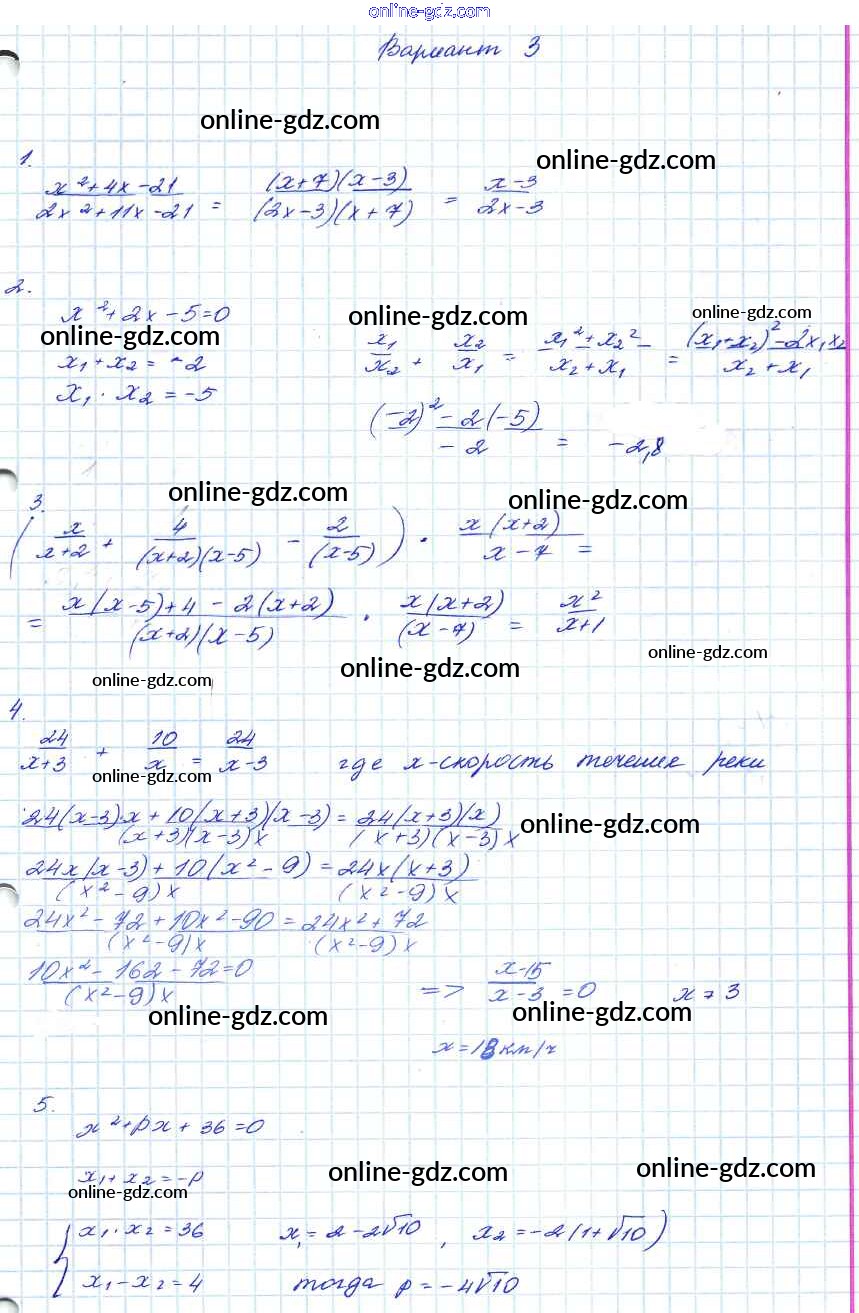 online-gdz.com
Вариант 3
online-gdz.com
online-gdz.com
1.
(x²+4x-21)/(2x²+11x-21) = ((x+7)(x-3))/((2x-3)(x+7)) = (x-3)/(2x-3)
2.
x²+2x-5=0
online-gdz.com
online-gdz.com
online-gdz.com
x₁/x₂ + x₂/x₁ = (x₁²+x₂²)/(x₂+x₁) = ((x₁+x₂)²-2x₁x₂)/(x₂+x₁)
x₁+x₂=-2
x₁·x₂=-5
((-2)²-2(-5))/(-2) = -2,8
online-gdz.com
online-gdz.com
3.
(x/(x+2) + 4/((x+2)(x-5)) - 2/(x-5)) · (x(x+2))/(x-7) =
= (x(x-5)+4-2(x+2))/((x+2)(x-5)) · (x(x+2))/(x-7) = x²/(x+1)
online-gdz.com
online-gdz.com
online-gdz.com
4.
24/(x+3) + 10/x = 24/(x-3) где x-скорость течения реки
online-gdz.com
(24(x-3)·x+10(x+3)(x-3))/((x+3)(x-3)x) = (24(x+3)(x))/((x+3)(x-3)x)
online-gdz.com
(24x(x-3)+10(x²-9))/((x²-9)x) = (24x(x+3))/((x²-9)x)
(24x²-72+10x²-90)/((x²-9)x) = (24x²+72)/((x²-9)x)
(10x²-162-72)/((x²-9)x) =0 => (x-15)/(x-3) =0
online-gdz.com
online-gdz.com
x=18км/ч
5.
x²+px+36=0
online-gdz.com
online-gdz.com
x₁+x₂=-p
online-gdz.com
x₁·x₂=36
x₁=2-2√10, x₂=-2(1+√10)
x₁-x₂=4
тогда p=-4√10